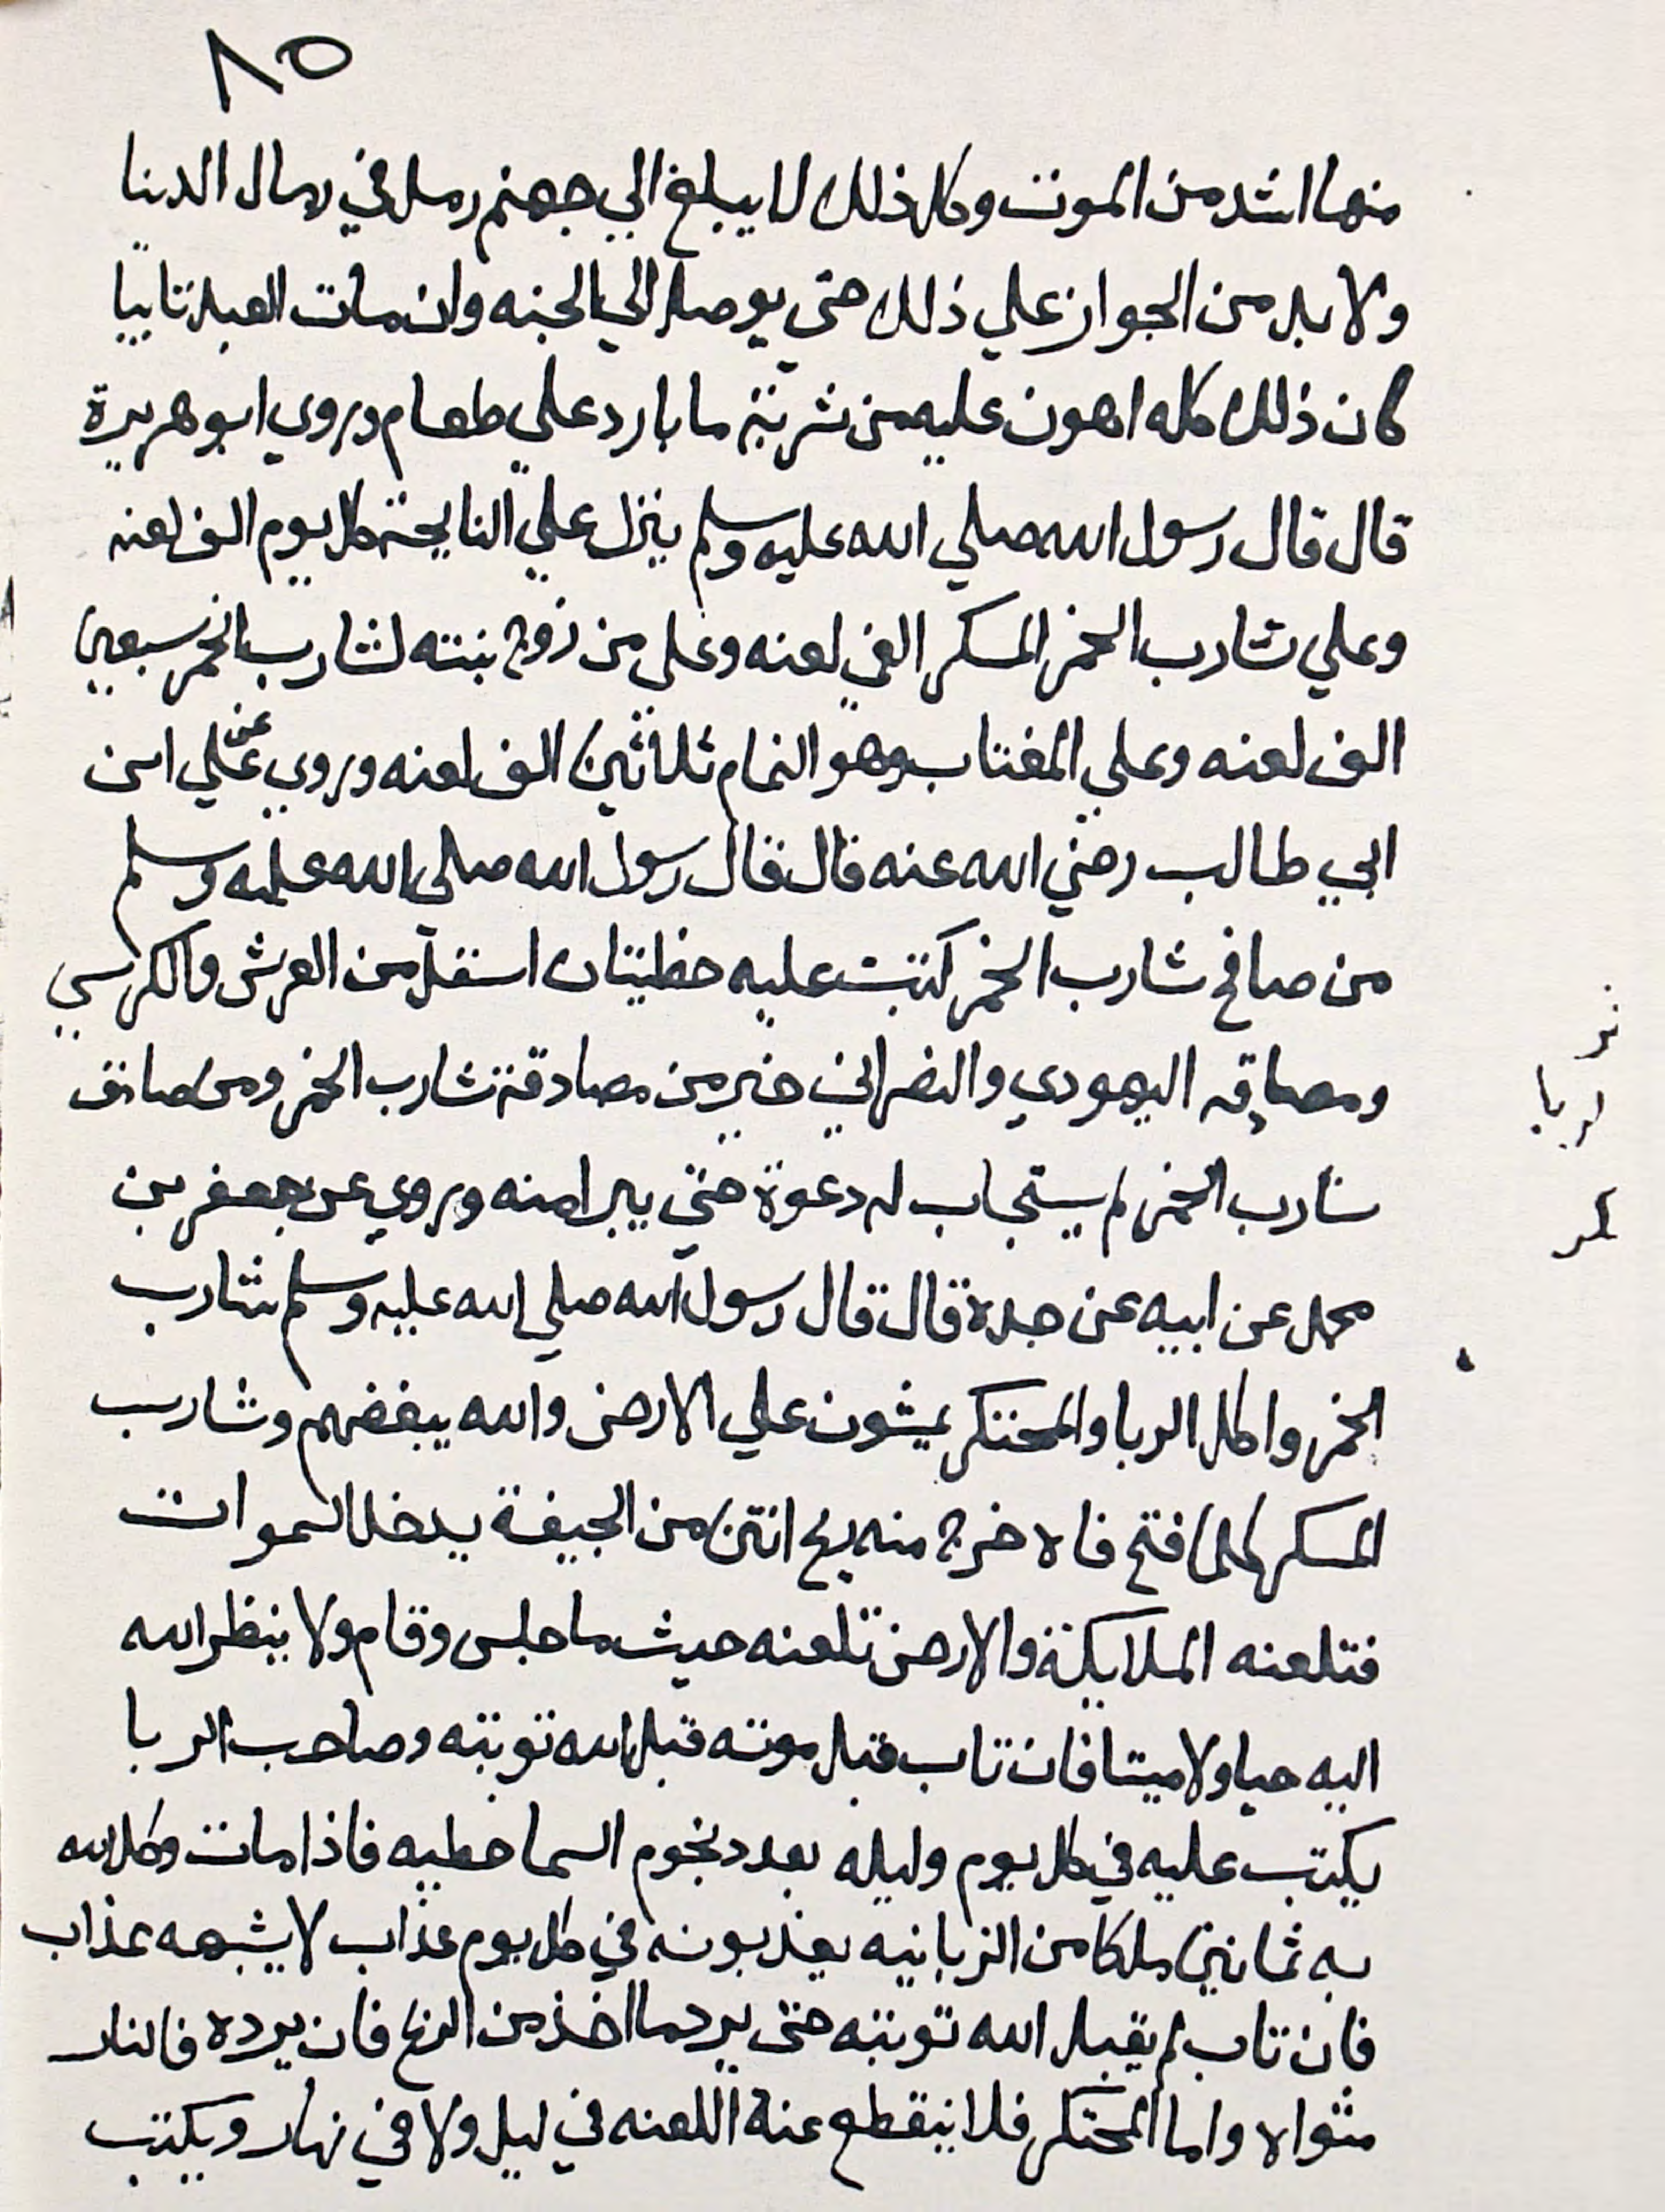 ٨٥
منها اشد من الموت وكل ذلك لا يبلغ الي جهنم رمل في رمال الدنيا
ولا بد من الجواز علي ذلك حتي يوصل الي الجنه وان مات العبد تايبا
كان ذلك كله اهون عليه من شربة ما بارد علي طعام وروي ابو هريرة
قال قال رسول الله صلي الله عليه وسلم ينزل علي النايحة كل يوم الف لعنه
وعلي شارب الخمر المسكر الفي لعنه وعلي من زوج بنته لشارب الخمر سبعين
الف لعنه وعلي المغتاب وهو النمام ثلاثين الف لعنه وروي عن علي ابن
ابي طالب رضي الله عنه قال قال رسول الله صلي الله عليه وسلم
من صافح شارب الخمر كتبت عليه خطيتان اثقل من العرش والكرسي
ومصادقه اليهودي والنصراني خير من مصادقة شارب الخمر ومن صادق
شارب الخمر لم يستجاب له دعوة حتي يبرا منه وروي عن جعفر بن
محمد عن ابيه عن جده قال قال رسول الله صلي الله عليه وسلم شارب
الخمر واكل الربا والمحتكر يمشون علي الارض والله يبغضهم وشارب
المسكر كلما فتح فاه خرج منه ريح انتن من الجيفة يدخل السموات
فتلعنه الملايكة والارض تلعنه حيث ما جلس وقام ولا ينظر الله
اليه حيا ولا ميتا فان تاب قبل موته قبل الله توبته وصاحب الربا
يكتب عليه في كل يوم وليله بعدد نجوم السما خطيه فاذا مات وكل الله
به ثمانين ملكا من الزبانيه يعذبونه في كل يوم عذاب لا يشبهه عذاب
فان تاب لم يقبل الله توبته حتي يرد ما اخذ من الربح فان يرده فالنار
مثواه واما المحتكر فلا ينقطع عنه اللعنه في ليل ولا في نهار ويكتب